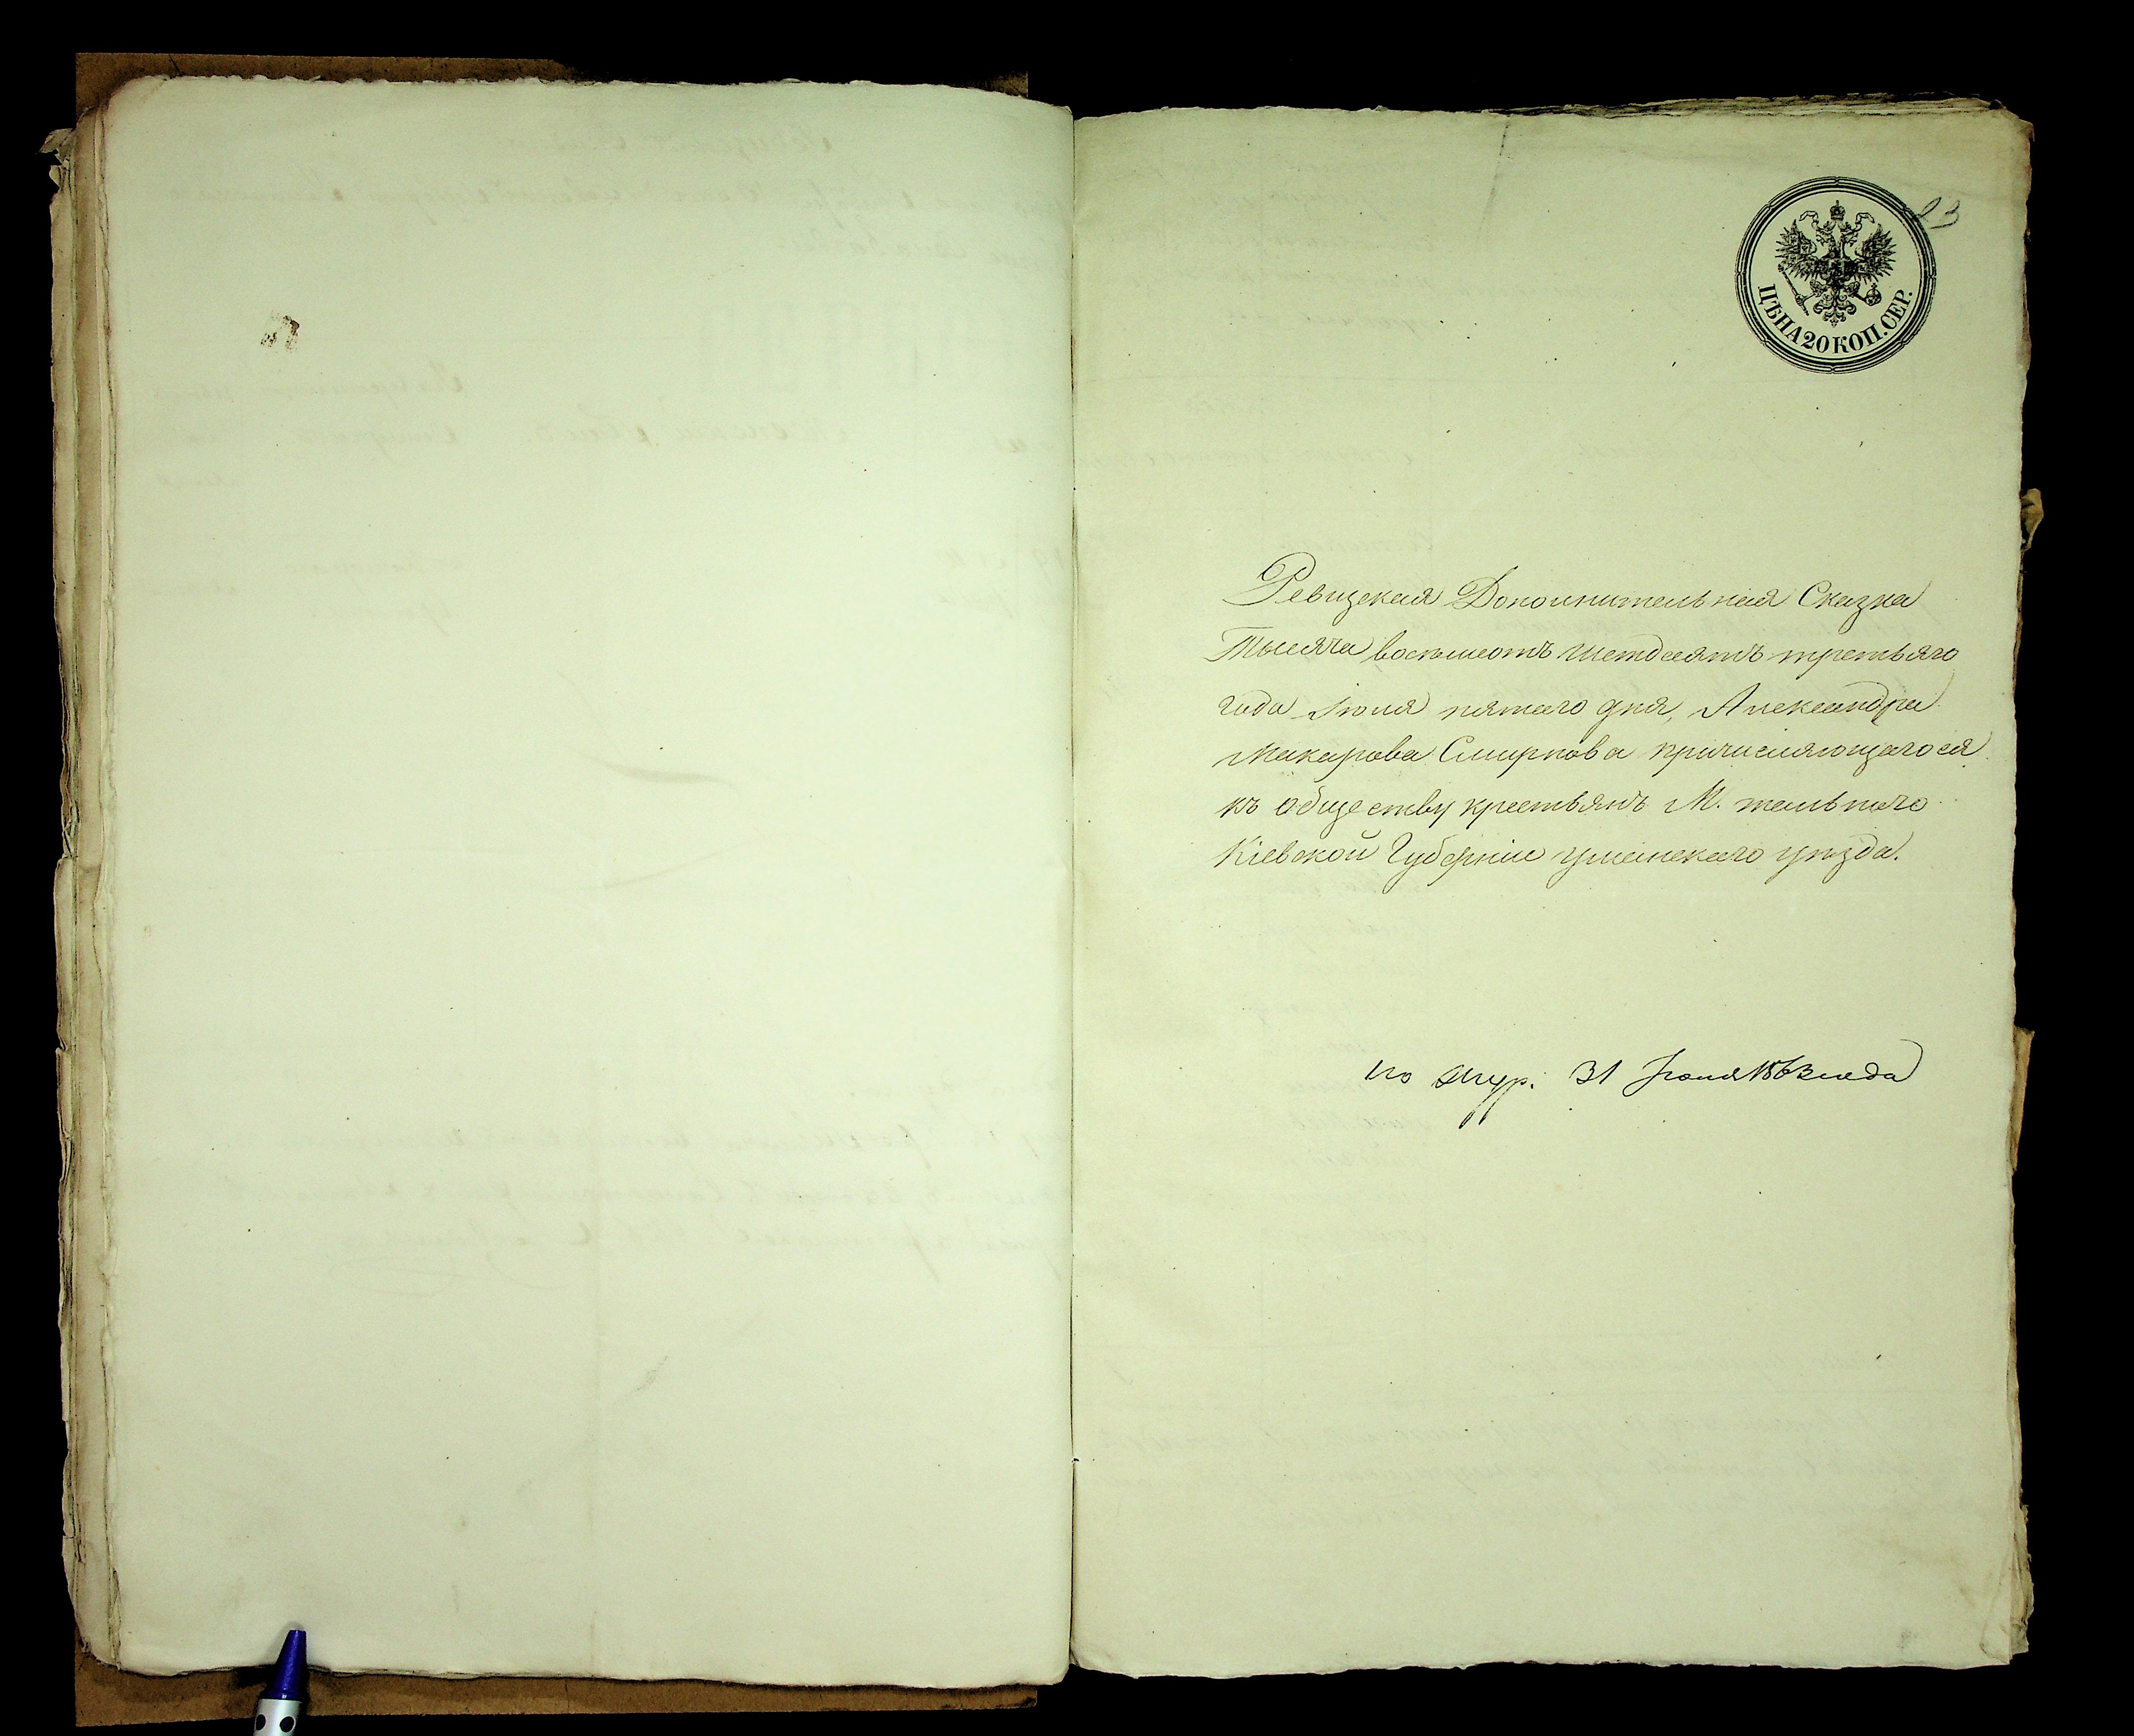 23
ЦѢНА 20 КОП. СЕР.
Ревизская Дополнительная Сказка
Тысяча восемьсотъ шетдсятъ третьяго
года Іюля пятаго дня, Александра
Макарова Смирнова причисляющагося
къ обществу крестьянъ М. тальнаго
Кіевской Губерніи уманскаго уѣзда.
по жур. 31 Іюля 1863 года